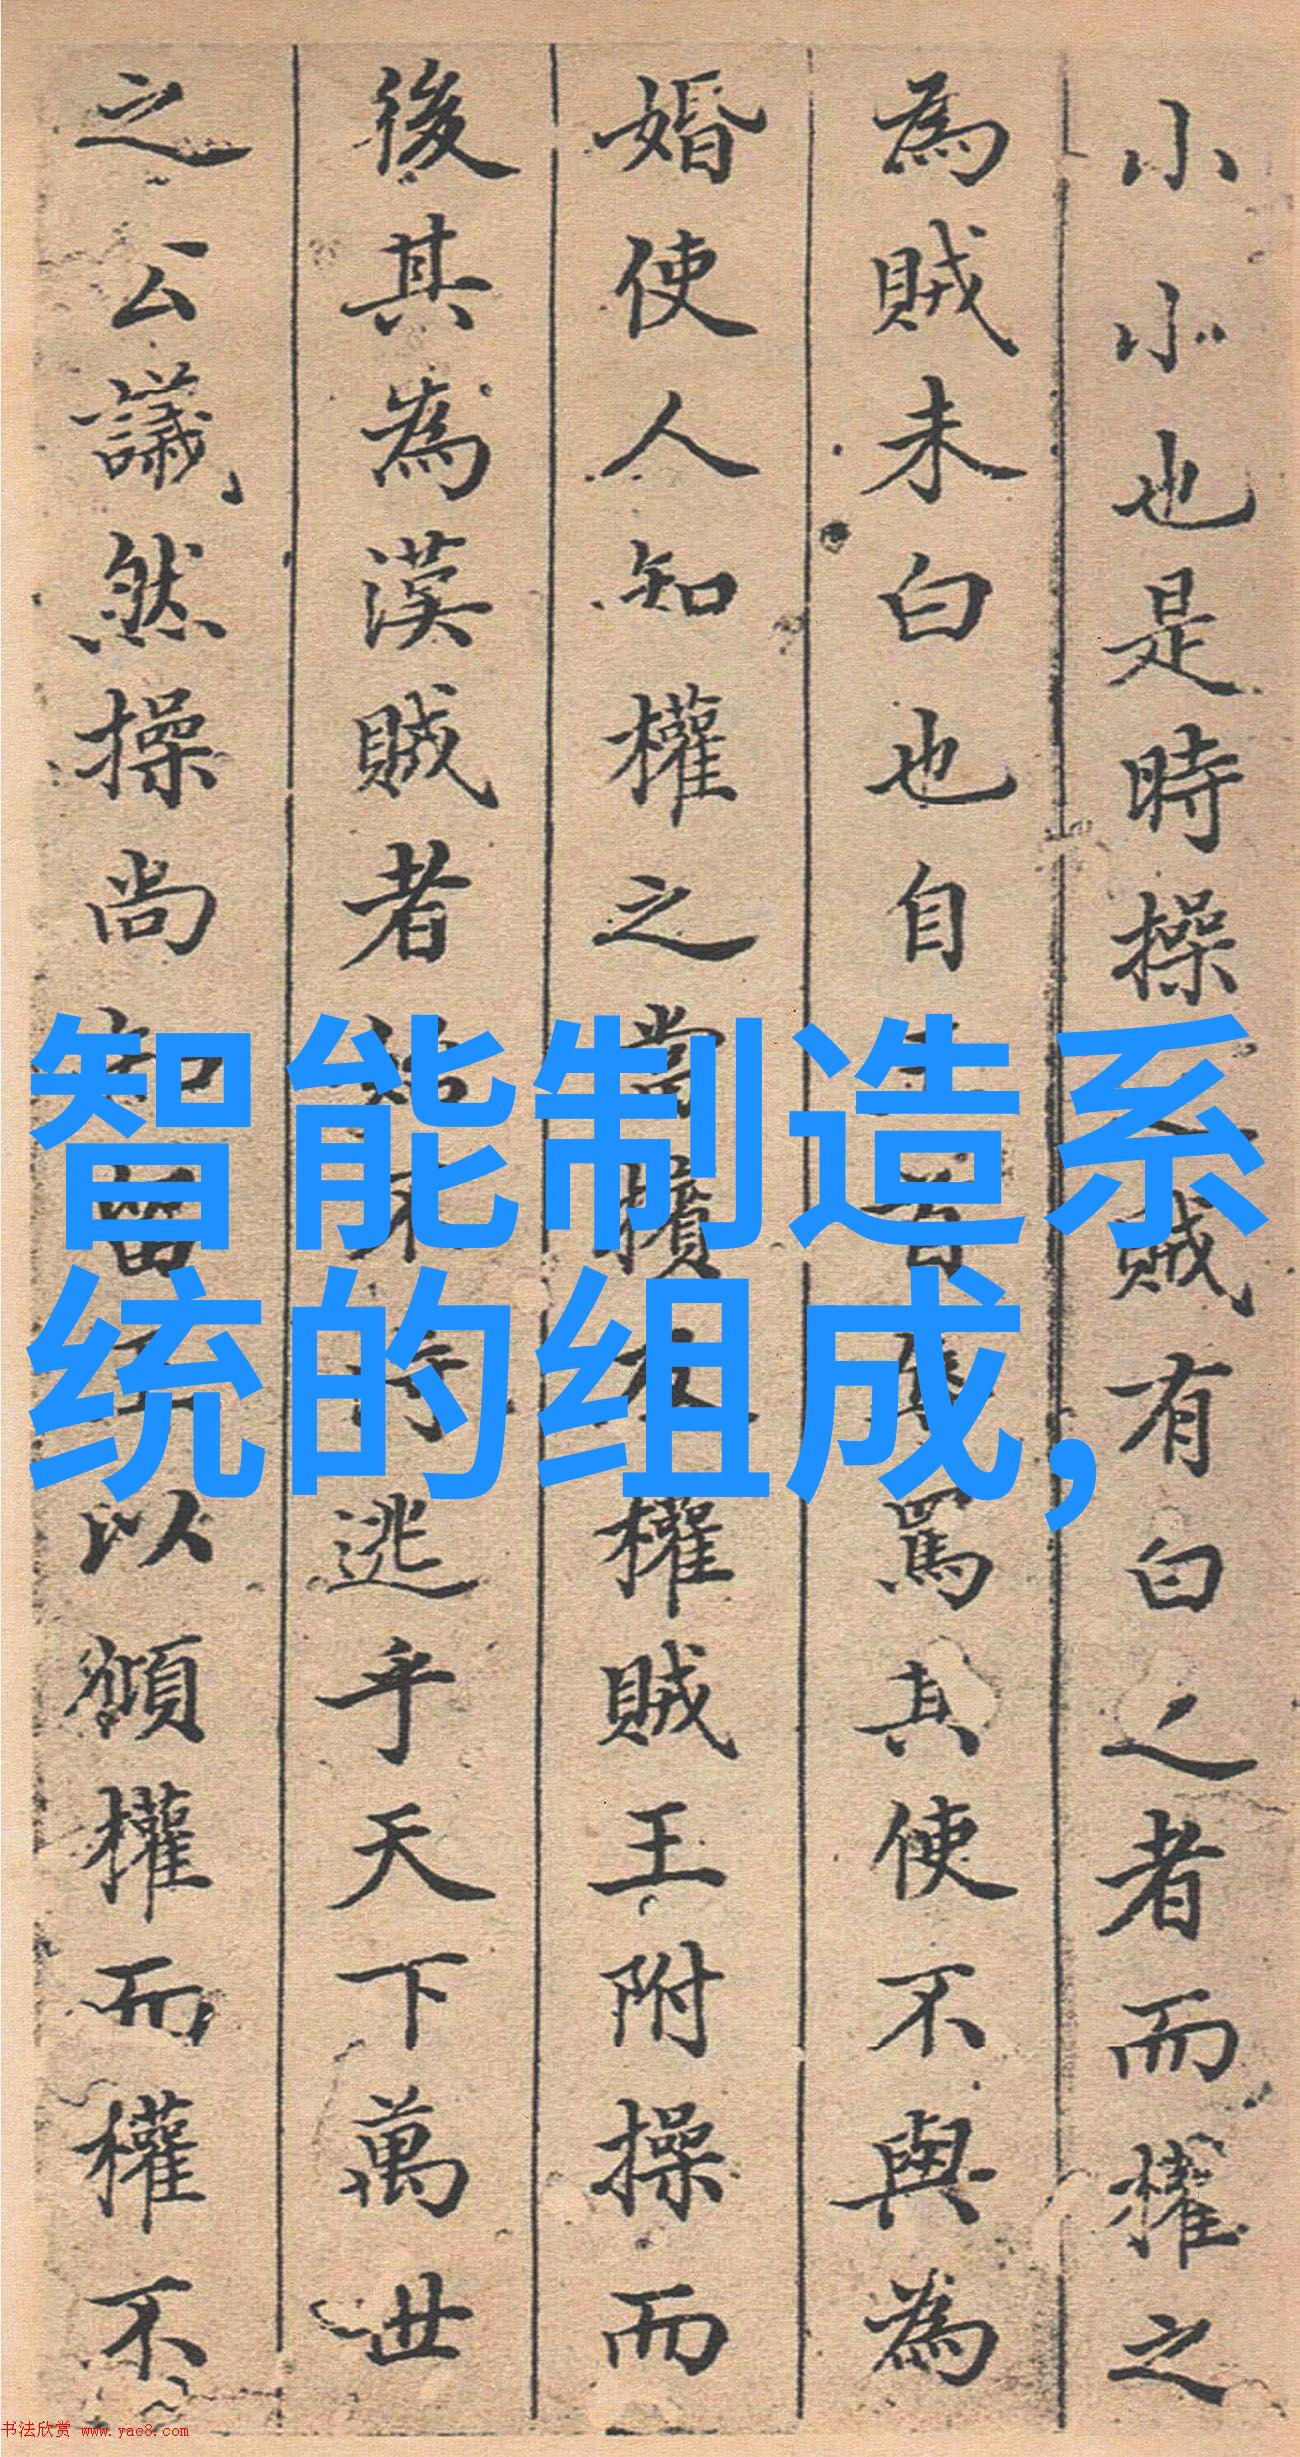 小小也是時操賊有白之者而權之
為賊未白也自罵其使不與為
婚使人知權之擯權賊王附操而
後其為漢賊者不逃乎天下萬世
之公議然操尚以權而權不
智能制造系
统的组成,
书法欣赏 www.yac8.com